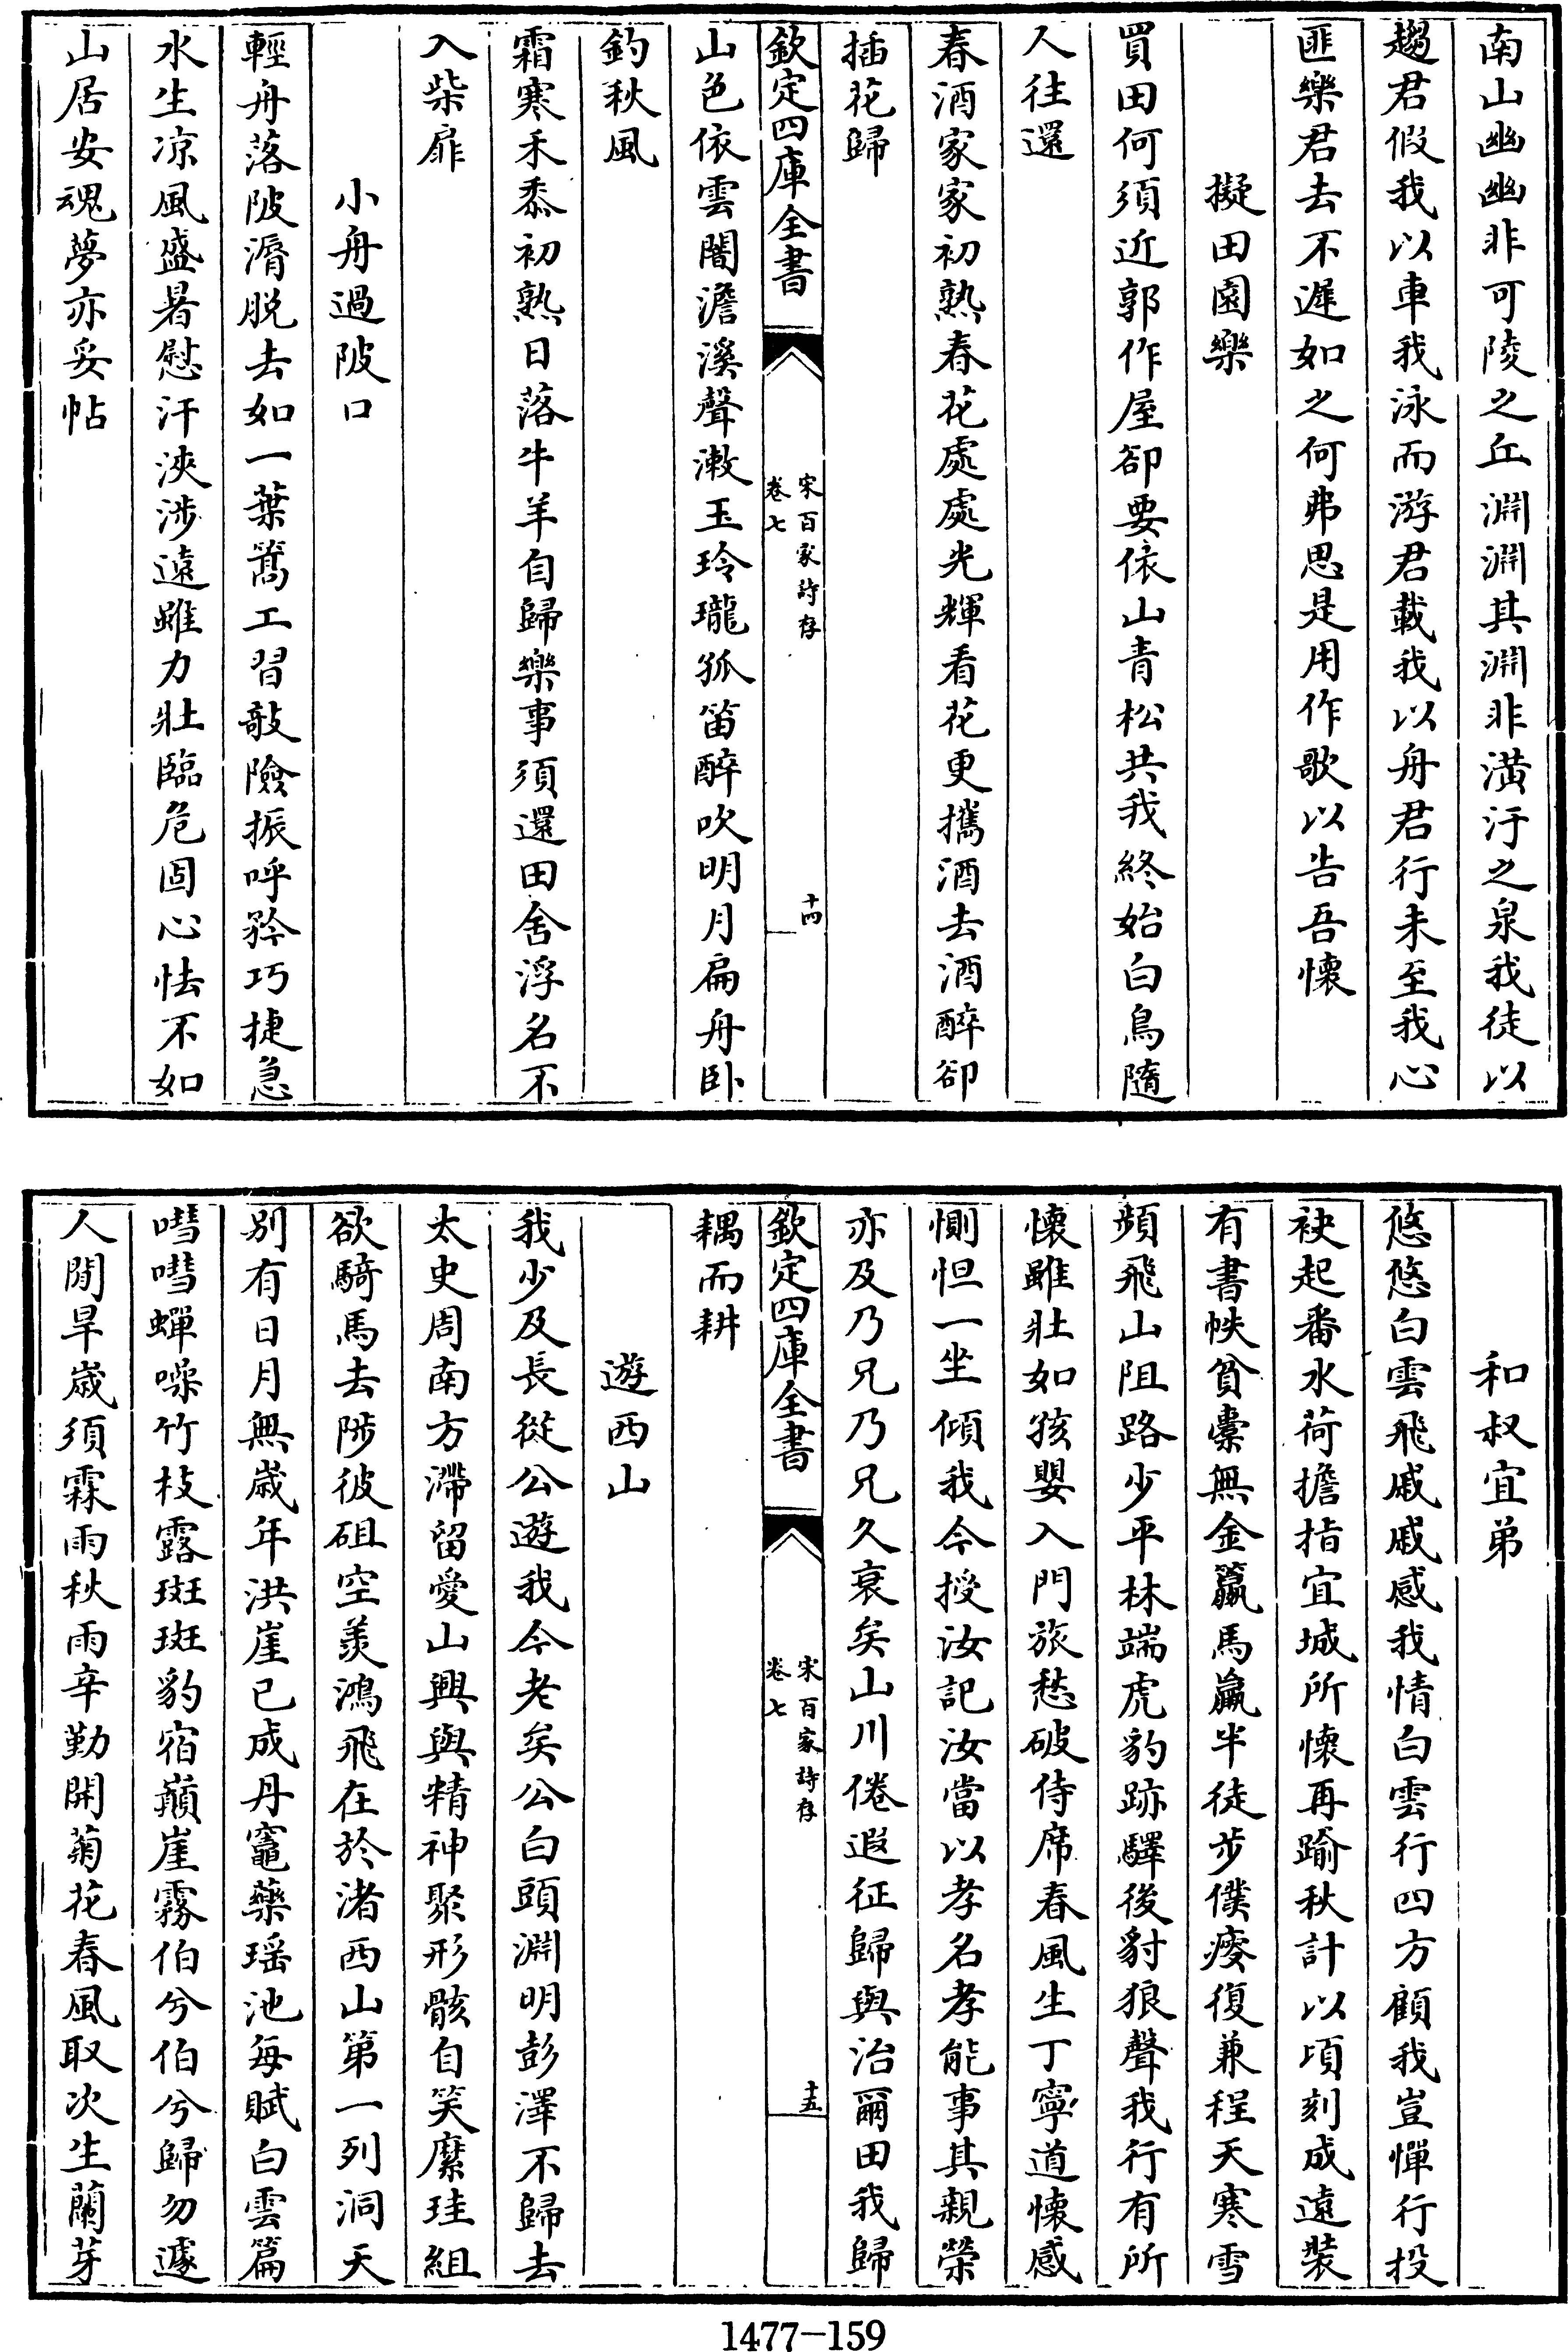 南山幽幽非可陵之丘淵淵其淵非潢汙之泉我徒以
趨君假我以車我泳而游君載我以舟君行未至我心
匪樂君去不遲如之何弗思是用作歌以告吾懷
擬田園樂
買田何須近郭作屋卻要依山青松共我終始白鳥隨
人往還
春酒家家初熟春花處處光輝看花更攜酒去酒醉卻
插花歸
欽定四庫全書
宋百家詩存
卷七
十四
山色依雲闇澹溪聲漱玉玲瓏孤笛醉吹明月扁舟臥
釣秋風
霜寒禾黍初熟日落牛羊自歸樂事須還田舍浮名不
入柴扉
小舟過陂口
輕舟落陂漘脫去如一葉篙工習敲險振呼矜巧捷急
水生凉風盛暑慰汗浹涉遠雖力壯臨危固心怯不如
山居安魂夢亦妥帖
和叔宜弟
悠悠白雲飛戚戚感我情白雲行四方顧我豈憚行投
袂起番水荷擔指宜城所懷再踰秋計以頃刻成遠裝
有書帙貧橐無金籯馬羸半徒步僕瘘復兼程天寒雪
頻飛山阻路少平林端虎豹跡驛後豺狼聲我行有所
懷雖壯如孩嬰入門旅愁破侍席春風生丁寧道懷感
惻怛一坐傾我今授汝記汝當以孝名孝能事其親榮
亦及乃兄乃兄久衰矣山川倦遐征歸與治爾田我歸
欽定四庫全書
宋百家詩存
卷七
十五
耦而耕
遊西山
我少及長從公遊我今老矣公白頭淵明彭澤不歸去
太史周南方滯留愛山興與精神聚形骸自笑縻珪組
欲騎馬去陟彼砠空羨鴻飛在於渚西山第一列洞天
別有日月無歲年洪崖已成丹竈藥瑶池每賦白雲篇
嘒嘒蟬噪竹枝露斑斑豹宿巔崖霧伯兮伯兮歸勿遽
人間旱歲須霖雨秋雨辛勤開菊花春風取次生蘭芽
1477-159